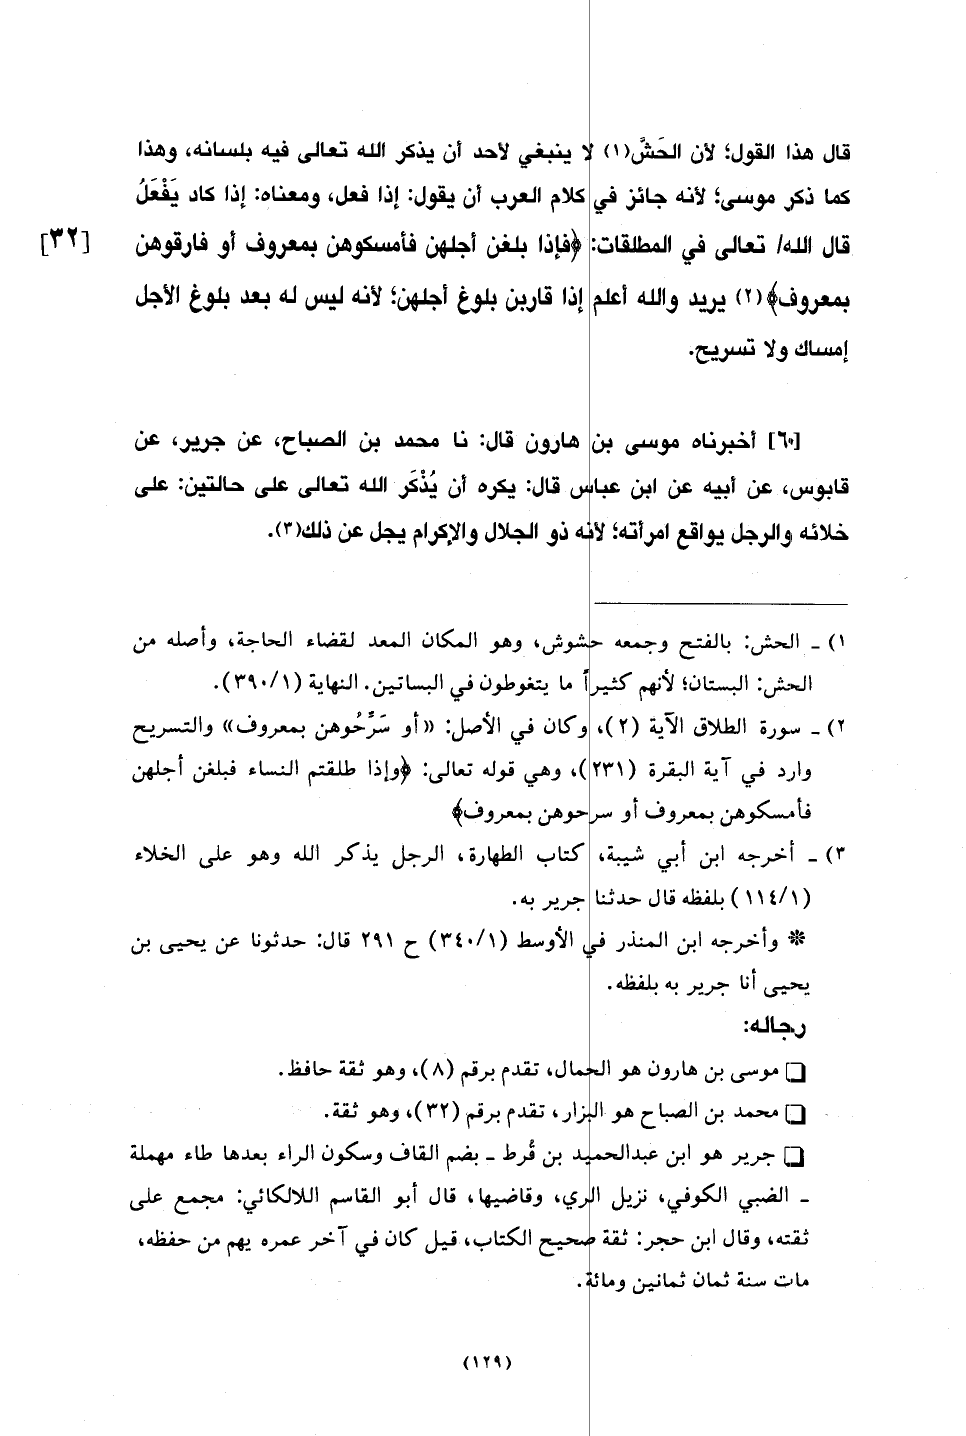 قال هذا القول؛ لأن الحَشَّ(١) لا ينبغي لأحد أن يذكر الله تعالى فيه بلسانه، وهذا
كما ذكر موسى؛ لأنه جائز في كلام العرب أن يقول: إذا فعل، ومعناه: إذا كاد يَفْعَلُ
قال الله/ تعالى في المطلقات: ﴿فإذا بلغن أجلهن فأمسكوهن بمعروف أو فارقوهن [٣٢]
بمعروف﴾(٢) يريد والله أعلم إذا قاربن بلوغ أجلهن؛ لأنه ليس له بعد بلوغ الأجل
إمساك ولا تسريح.
[٦٠] أخبرناه موسى بن هارون قال: نا محمد بن الصباح، عن جرير، عن
قابوس، عن أبيه عن ابن عباس قال: يكره أن يُذْكَر الله تعالى على حالتين: على
خلائه والرجل يواقع امرأته؛ لأنه ذو الجلال والإكرام يجل عن ذلك(٣).
١) ـ الحش: بالفتح وجمعه حشوش، وهو المكان المعد لقضاء الحاجة، وأصله من
الحش: البستان؛ لأنهم كثيراً ما يتغوطون في البساتين. النهاية (٣٩٠/١).
٢) ـ سورة الطلاق الآية (٢)، وكان في الأصل: «أو سَرِّحُوهن بمعروف» والتسريح
وارد في آية البقرة (٢٣١)، وهي قوله تعالى: ﴿وإذا طلقتم النساء فبلغن أجلهن
فأمسكوهن بمعروف أو سرحوهن بمعروف﴾
٣) ـ أخرجه ابن أبي شيبة، كتاب الطهارة، الرجل يذكر الله وهو على الخلاء
(١١٤/١) بلفظه قال حدثنا جرير به.
* وأخرجه ابن المنذر في الأوسط (٣٤٠/١) ح ٢٩١ قال: حدثونا عن يحيى بن
يحيى أنا جرير به بلفظه.
رجاله:
❑ موسى بن هارون هو الحمال، تقدم برقم (٨)، وهو ثقة حافظ.
❑ محمد بن الصباح هو البزار، تقدم برقم (٣٢)، وهو ثقة.
❑ جرير هو ابن عبدالحميد بن قُرط ـ بضم القاف وسكون الراء بعدها طاء مهملة
ـ الضبي الكوفي، نزيل الري، وقاضيها، قال أبو القاسم اللالكائي: مجمع على
ثقته، وقال ابن حجر: ثقة صحيح الكتاب، قيل كان في آخر عمره يهم من حفظه،
مات سنة ثمان ثمانين ومائة.
(١٢٩)